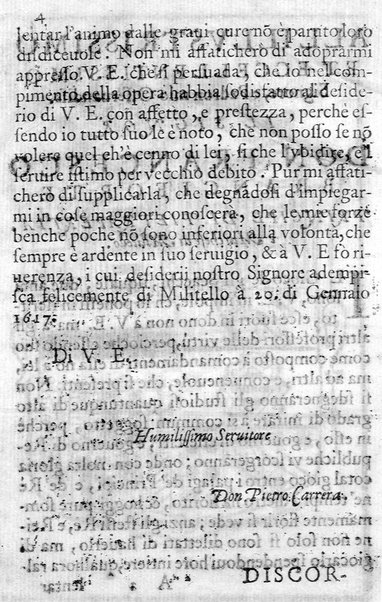 4
lentar l'animo dalle graui cure nõ è paruto loro
disdiceuole. Non mi affaticherò di adoprarmi
appresso V. E. sche si persuada, che io nel com-
pimento della opera habbia sodisfatto al deside-
rio di V. E. con affetto, e prestezza, perchè es-
sendo io tutto suo le è noto, che non posso se nõ
volere quel ch'è cenno di lei, si che l'vbidire, e'l
seruire istimo per vecchio debito. Pur mi affati-
cherò di supplicarla, che degnãdosi d'impiegar-
mi in cose maggiori conoscerà, che le mie forze
benche poche nõ sono inferiori alla volontà, che
sempre è ardente in suo seruigio, & à V. E fò ri-
uerenza, i cui desiderii nostro Signore adempi-
sca felicemente di Militello à 20. di Gennaio
1617.
Di V. E.
Humilissimo Seruitore
Don Pietro Carrera.
DISCOR-